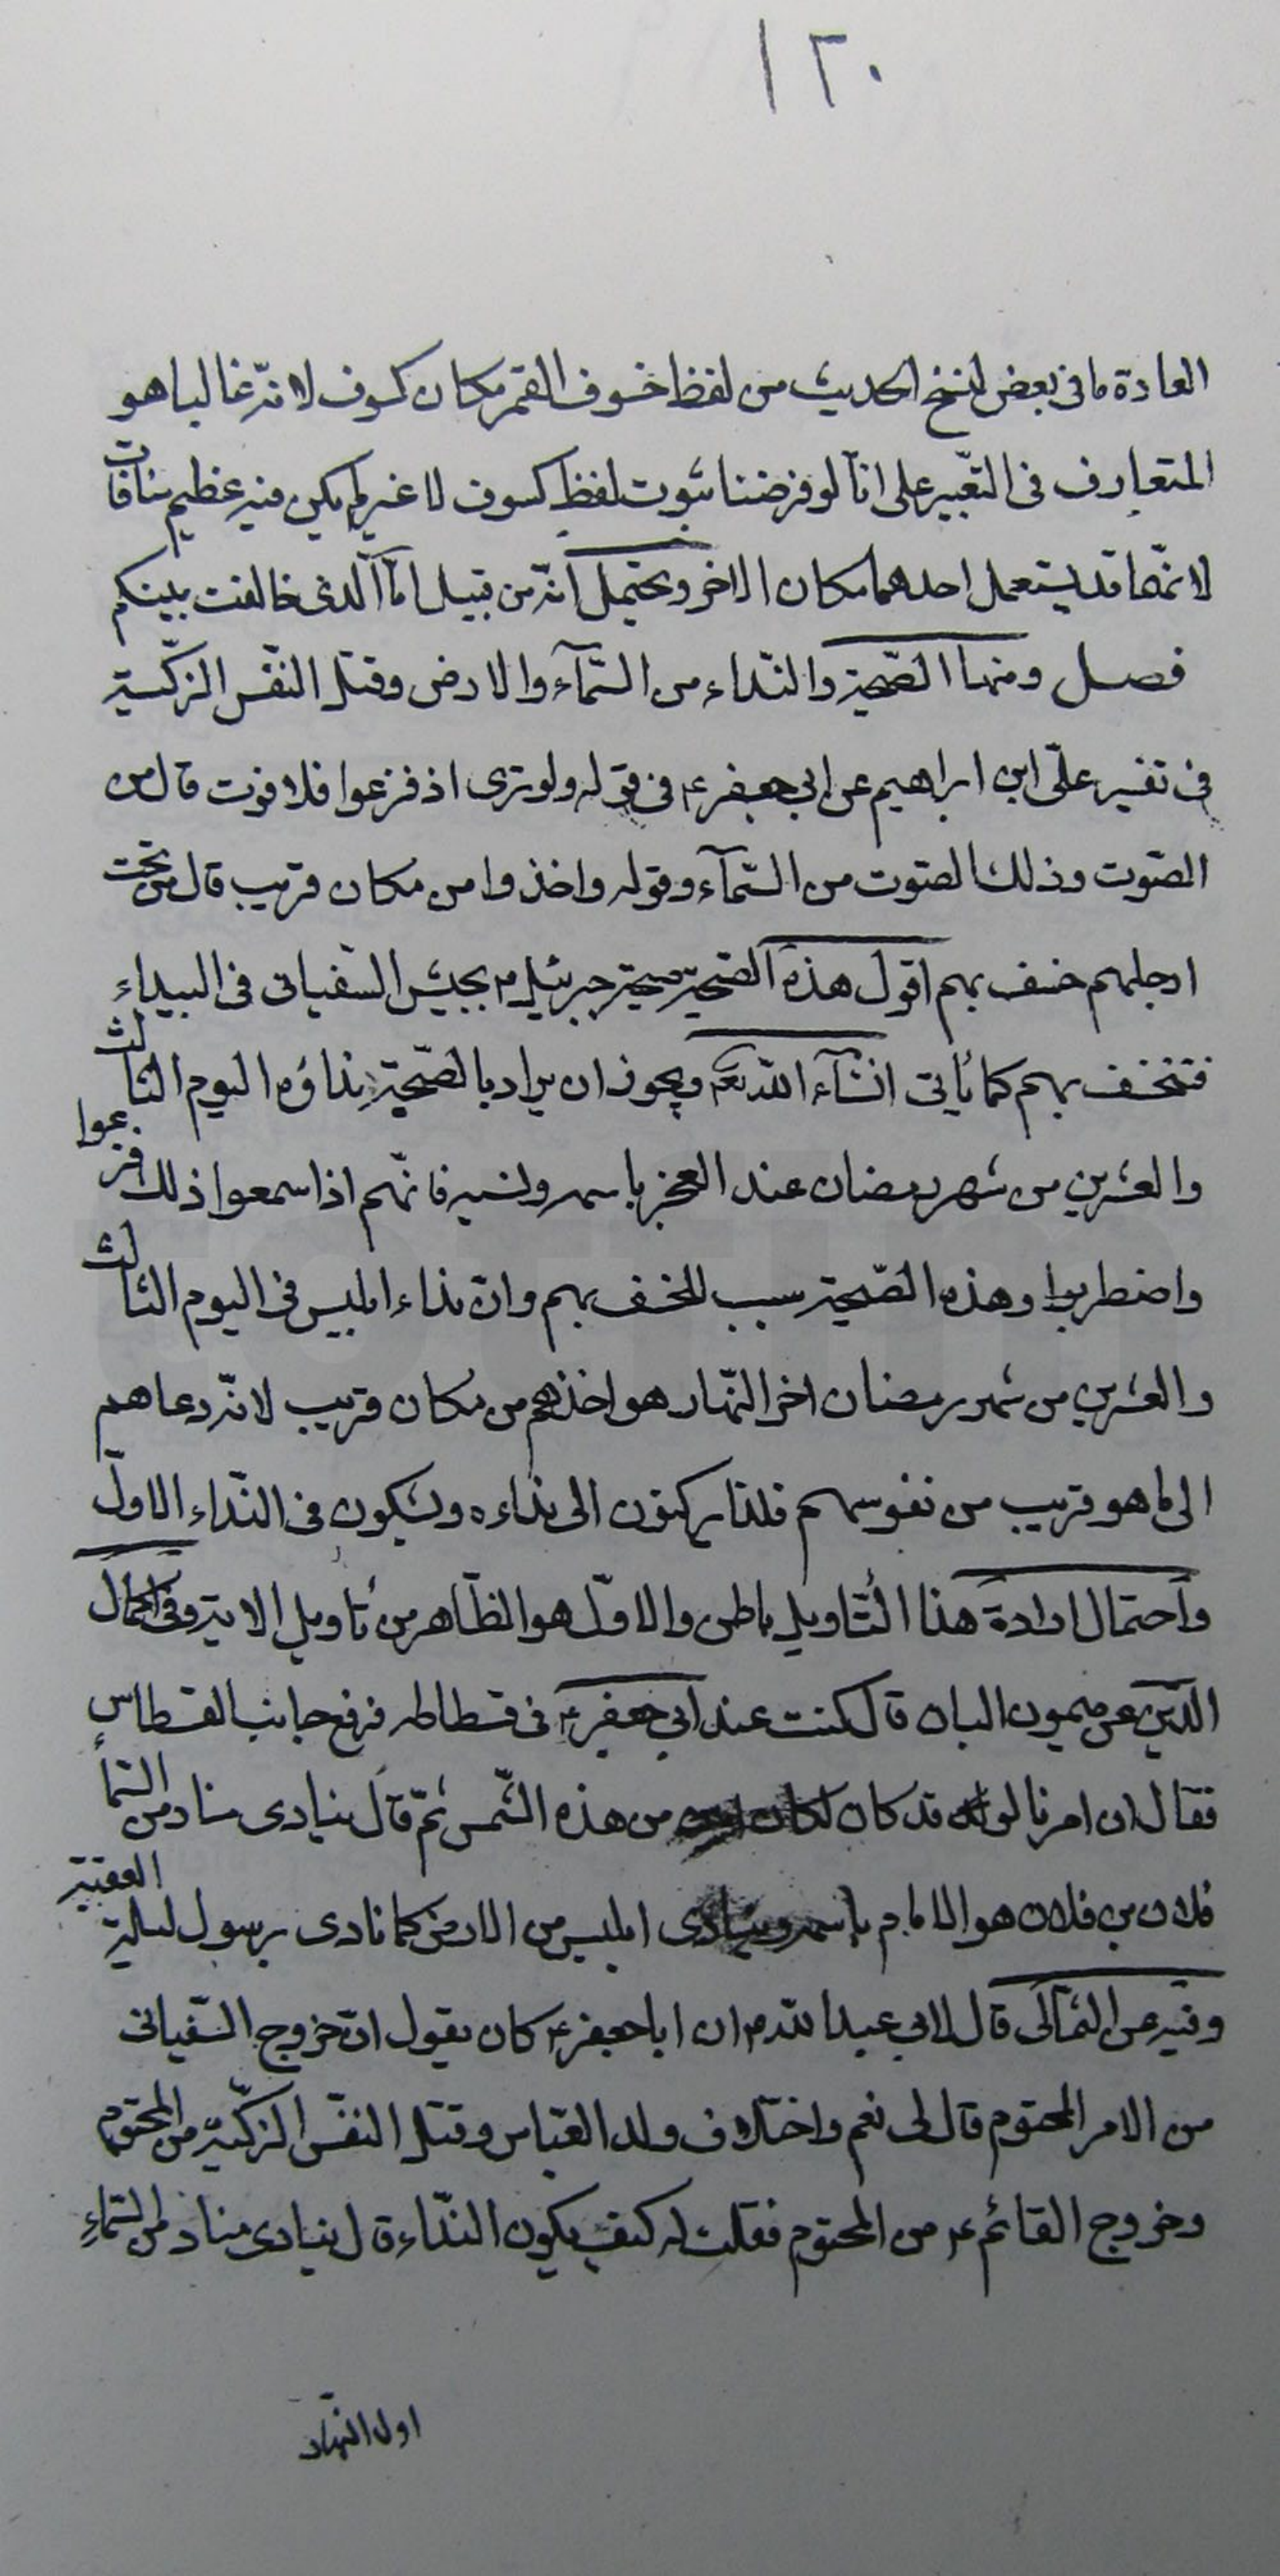 ١٢٠
العادة ما فى بعض نسخ الحديث من لفظ خسوف القمر مكان كسوف لانّه غالبا هو
المتعارف فى التّعبير على انّا لو فرضنا ثبوت لفظ كسوف لا غير لم يكن فيه عظيم منافات
لانّهما قد يستعمل احدهما مكان الاخر ويحتمل انّه من قبيل انّا الّذى خالفت بينكم
فصل ومنها الصّيحة والنّداء من السّمآء والارض وقتل النّفس الزّكيّة
فى تفسير علىّ ابن ابراهيم عن ابى جعفر ع فى قوله ولو ترى اذ فزعوا فلا فوت قال من
الصّوت وذلك الصّوت من السّمآء وقوله واخذوا من مكان قريب قال من تحت
ارجلهم خسف بهم اقول هذه الصّيحة صيحة جبرئيل ع بجيش السّفيانى فى البيداء
فتخسف بهم كما يأتى انشآء اللّه تعالى ويجوز ان يراد بالصّيحة نداؤه اليوم الثالث
والعشرين من شهر رمضان عند الفجر باسمه ونسبه فانّهم اذا سمعوا ذلك فزعوا
واضطربوا وهذه الصّيحة سبب للخسف بهم وانّ نداء ابليس فى اليوم الثالث
والعشرين من شهر رمضان اخر النّهار هو اخذهم من مكان قريب لانّه دعاهم
الى ما هو قريب من نفوسهم فلذا يركنون الى نداءه ويشكون فى النّداء الاوّل
واحتمال ارادة هذا التّأويل باطن والاوّل هو الظّاهر من تأويل الاية وفى اكمال
الدّين عن ميمون البان قال كنت عند ابى جعفر ع فى فسطاطه فرفع جانب الفسطاس
فقال ان امرنا لو قد كان لكان من هذه الشّمس ثمّ قال ينادى مناد من السّمآء
فلان بن فلان هو الامام باسمه وينادى ابليس من الارض كما نادى برسول ليلة العقبة
وفيه عن الثمالى قال لابى عبد اللّه ع ان ابا جعفر ع كان يقول انّ خروج السّفيانى
من الامر المحتوم قال لى نعم واختلاف ولد العبّاس وقتل النّفس الزّكيّة من المحتوم
وخروج القائم ع من المحتوم فقلت له كيف يكون النّداء قال ينادى مناد من السّمآء
اول النّهار